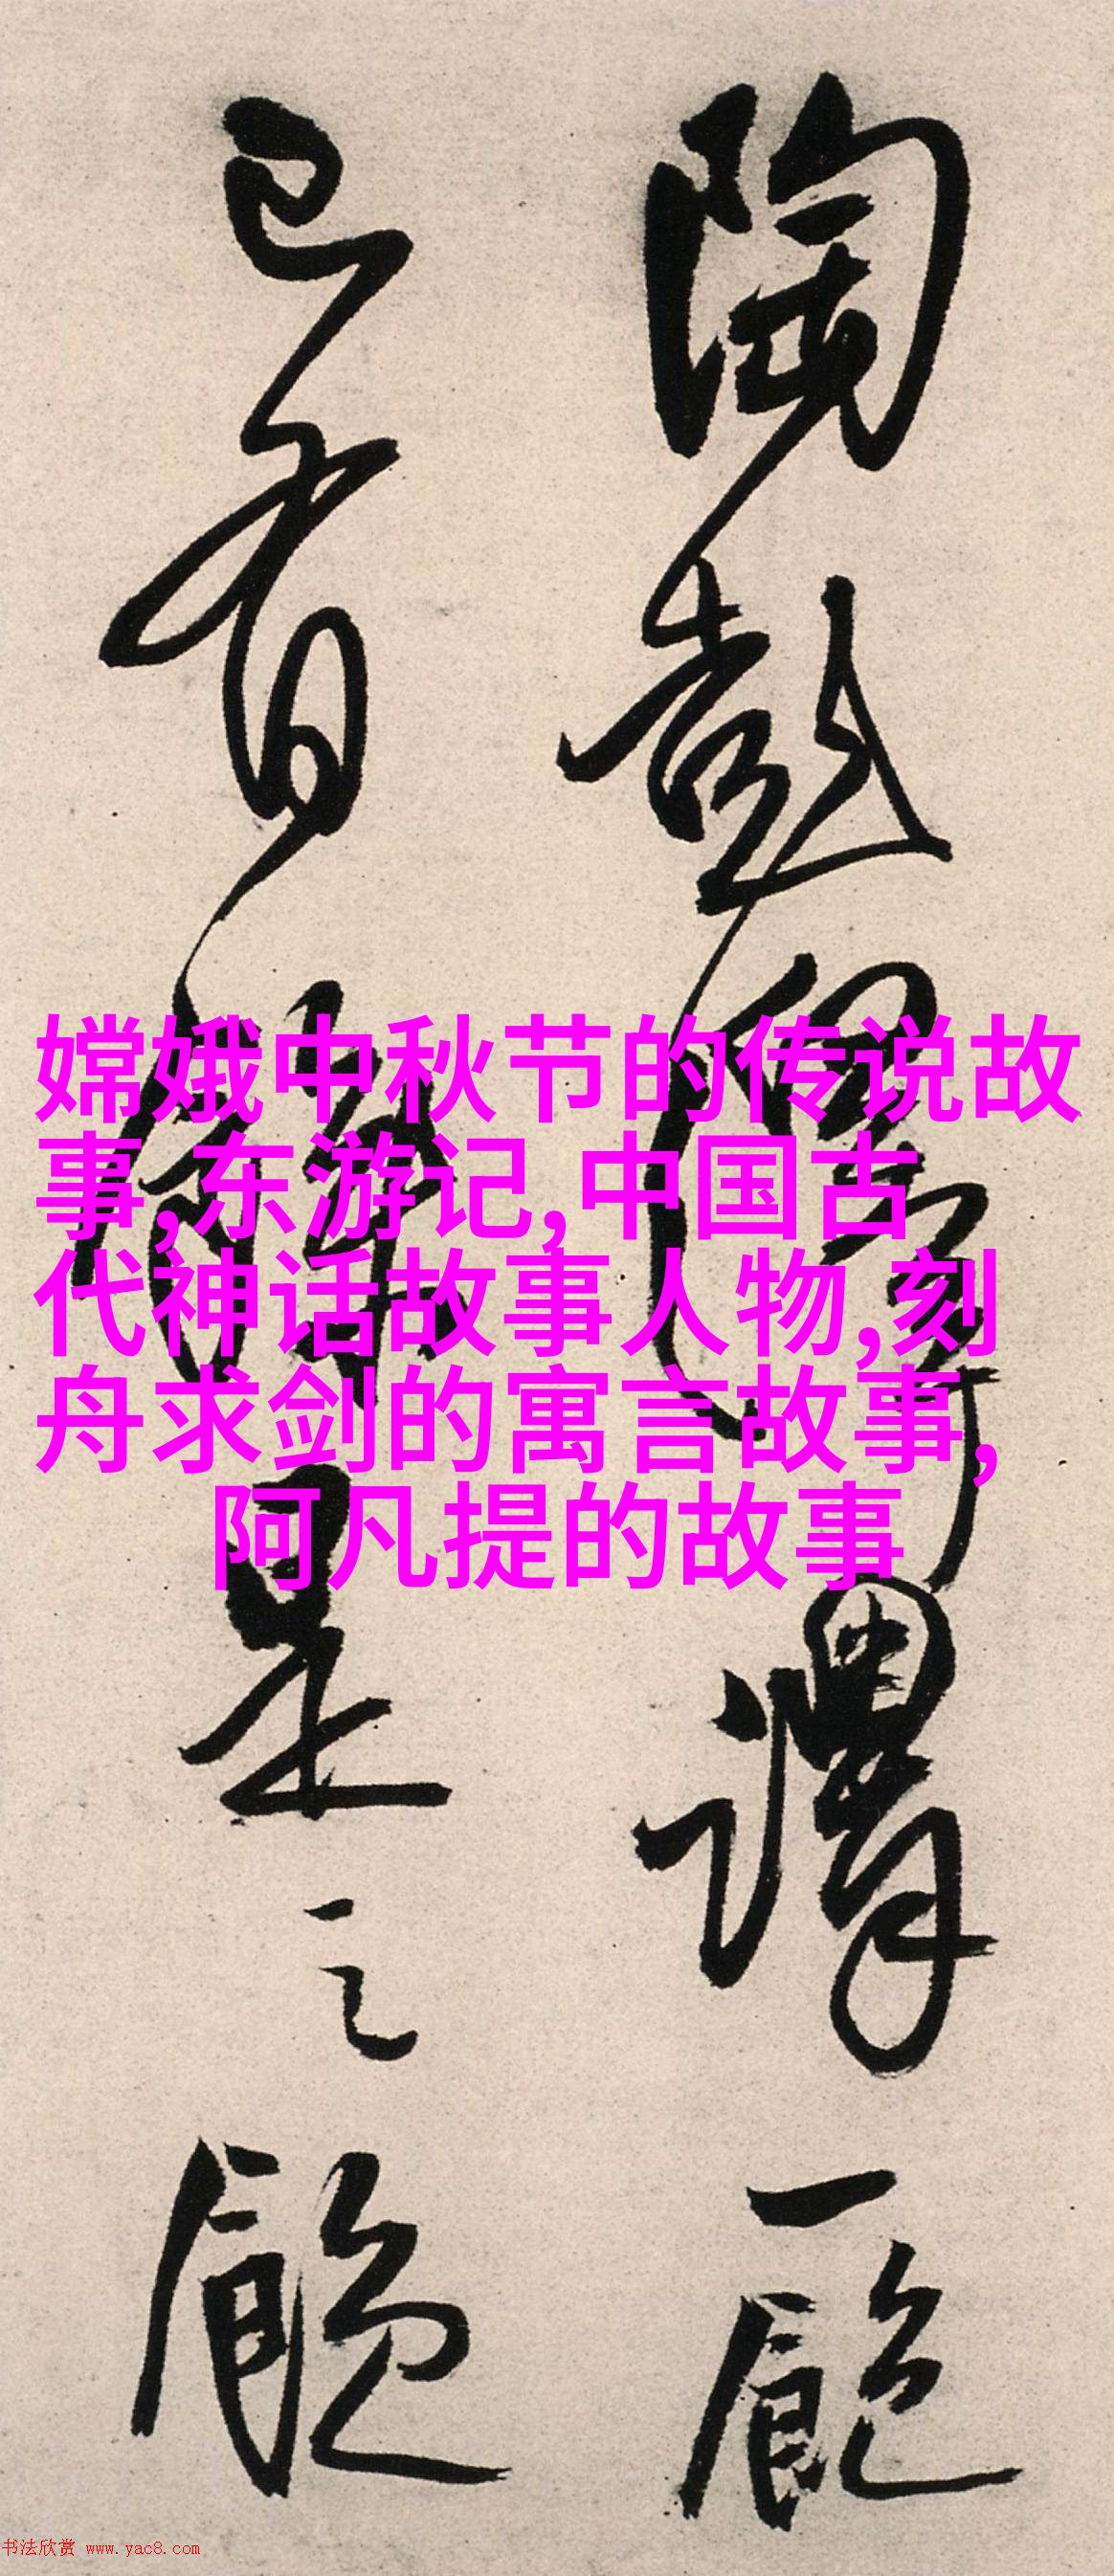 陶彭澤謂一
已有是之
嫦娥中秋节的传说故
事,东游记,中国古
代神话故事人物,刻
舟求剑的寓言故事,
阿凡提的故事
书法欣赏 www.yac8.com